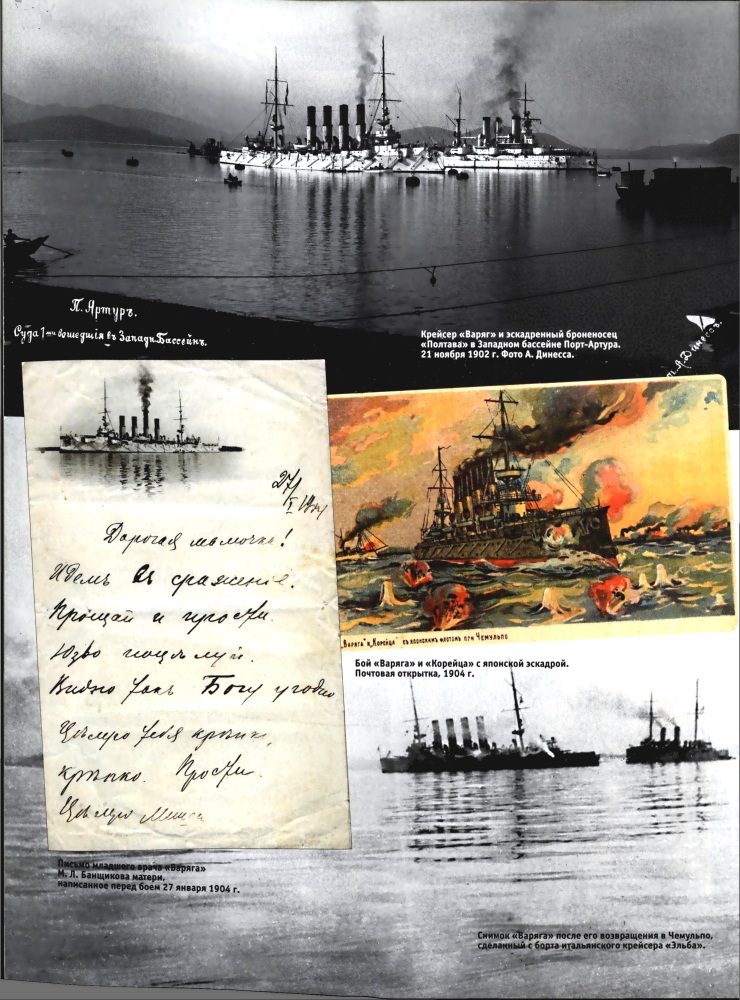 П. Артуръ.
Суда 1ми вошедшiя въ Западн. Бассейнъ.
Крейсер «Варяг» и эскадренный броненосец
«Полтава» в Западном бассейне Порт-Артура.
21 ноября 1902 г. Фото А. Динесса.
А. Динессъ.
27/I 1904
Дорогая мамочка!
Идемъ въ сраженiе.
Прощай и прости.
Юзю поцѣлуй.
Видно такъ Богу угодно
Цѣлую тебя крѣпко,
крѣпко. Прости.
Цѣлую Миша
„Варяга" и „Корейца" съ японскимъ флотомъ при Чемульпо
Бой «Варяга» и «Корейца» с японской эскадрой.
Почтовая открытка, 1904 г.
Письмо младшего врача «Варяга»
М. Л. Банщикова матери,
написанное перед боем 27 января 1904 г.
Снимок «Варяга» после его возвращения в Чемульпо,
сделанный с борта итальянского крейсера «Эльба».